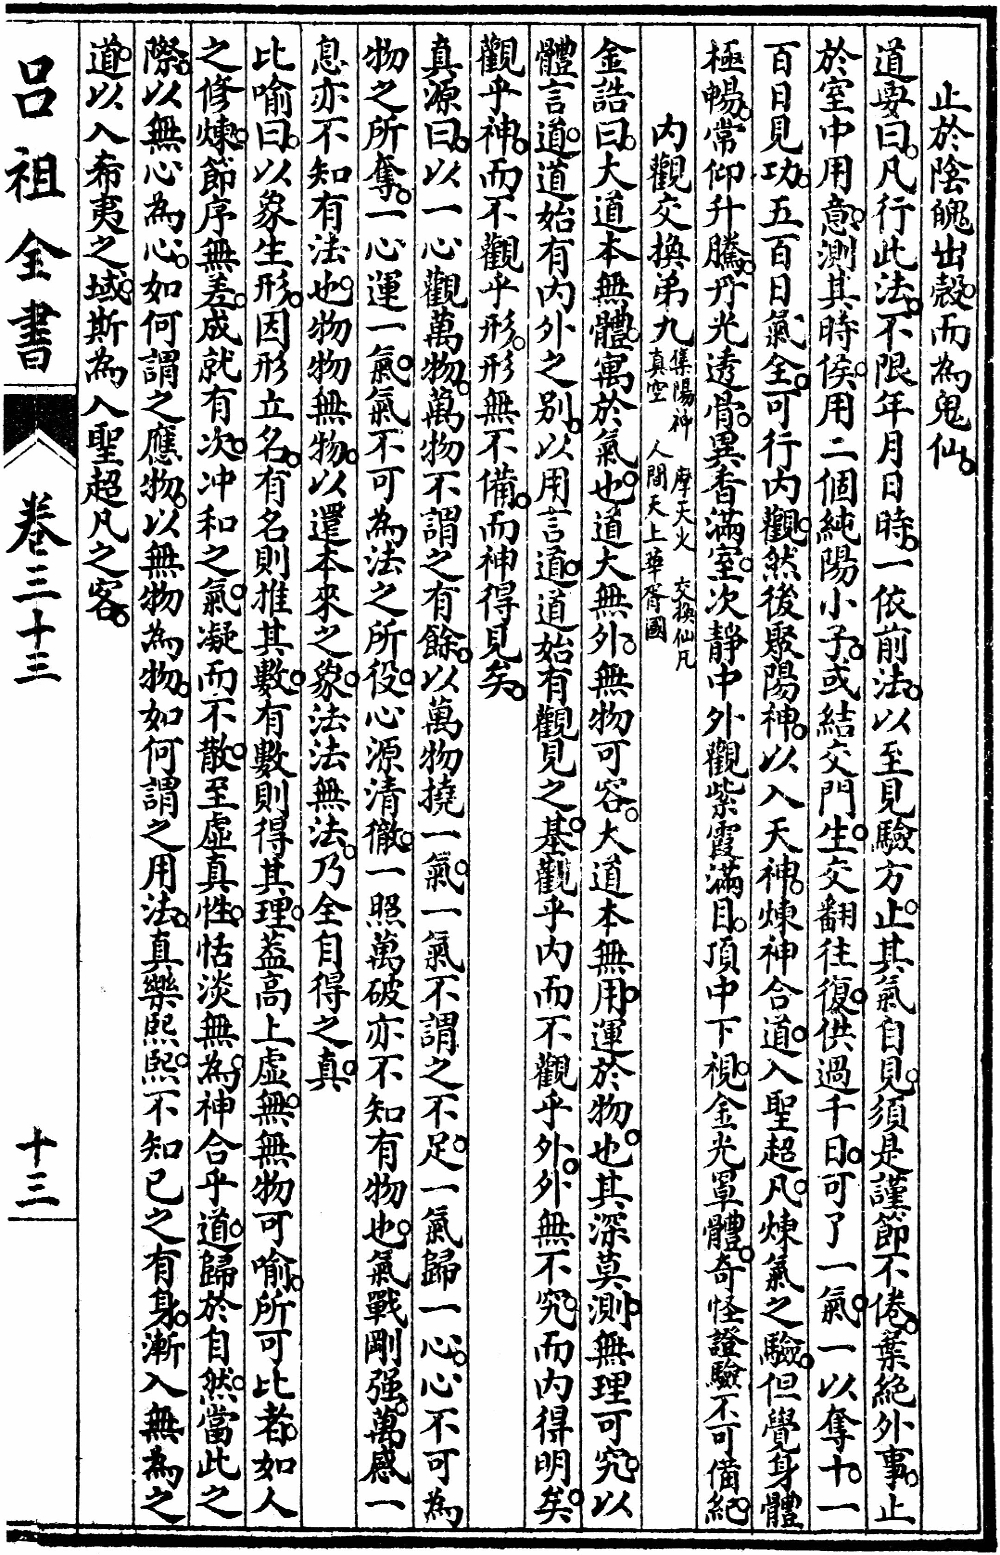 止於陰魄出殼而為鬼仙
道要曰凡行此法不限年月日時一依前法以至見驗方止其氣自見須是謹節不倦棄絕外事止
於室中用意測其時侯用二個純陽小子或結交門生交翻往復供過千日可了一氣一以奪十一
百日見功五百日氣全可行內觀然後聚陽神以入天神煉神合道入聖超凡煉氣之驗但覺身體
極暢常仰升騰丹光透骨異香滿室次靜中外觀紫霞滿目頂中下視金光罩體奇怪證驗不可備紀
內觀交換弟九 集陽神 真空 摩天火 人間天上華胥國 交換仙凡
金誥曰大道本無體寓於氣也道大無外無物可容大道本無用運於物也其深莫測無理可究以
體言道道始有內外之別以用言道道始有觀見之基觀乎內而不觀乎外外無不究而內得明矣
觀乎神而不觀乎形形無不備而神得見矣
真源曰以一心觀萬物萬物不謂之有餘以萬物撓一氣一氣不謂之不足一氣歸一心心不可為
物之所奪一心運一氣氣不可為法之所役心源清徹一照萬破亦不知有物也氣戰剛强萬感一
息亦不知有法也物物無物以還本來之象法法無法乃全自得之真
比喻曰以象生形因形立名有名則推其數有數則得其理葢高上虛無無物可喻所可比者如人
之修煉節序無差成就有次冲和之氣凝而不散至虛真性恬淡無為神合乎道歸於自然當此之
際以無心為心如何謂之應物以無物為物如何謂之用法真樂熙熙不知已之有身漸入無為之
道以入希夷之域斯為入聖超凡之客
呂祖全書 卷三十三 十三